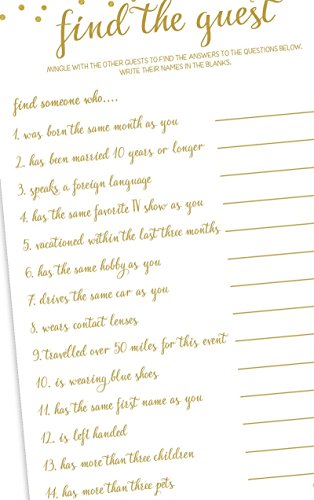 find the guest
MINGLE WITH THE OTHER GUESTS TO FIND THE ANSWERS TO THE QUESTIONS BELOW.
WRITE THEIR NAMES IN THE BLANKS.
find someone who....
1. was born the same month as you
2. has been married 10 years or longer
3. speaks a foreign language
4. has the same favorite TV show as you
5. vacationed within the last three months
6. has the same hobby as you
7. drives the same car as you
8. wears contact lenses
9. travelled over 50 miles for this event
10. is wearing blue shoes
11. has the same first name as you
12. is left handed
13. has more than three children
14. has more than three pets